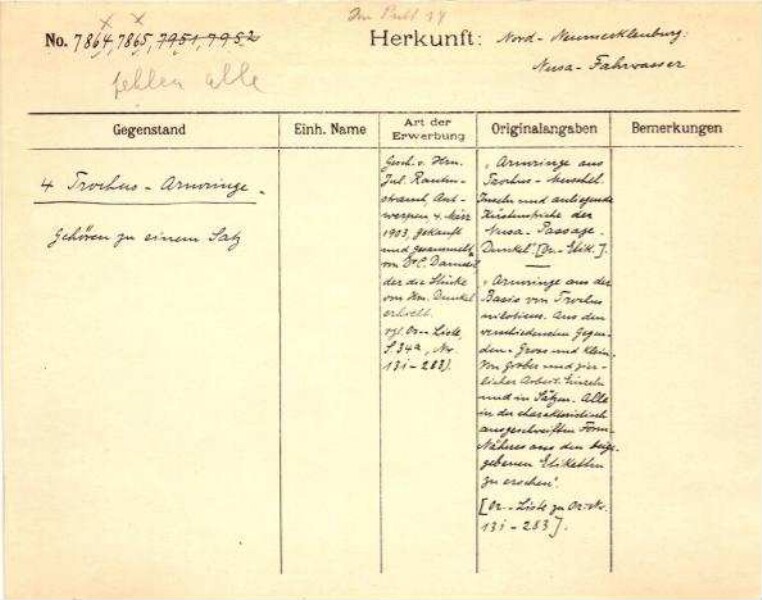 Im Pult 34
No. 7864, 7865, 7951, 7952
Herkunft: Nord-Neumecklenburg:
Nusa-Fahrwasser
fehlen alle
Gegenstand
Einh. Name
Art der Erwerbung
Originalangaben
Bemerkungen
4 Trochus-Armringe.
Gehören zu einem Satz
Gesch. v. Hrn.
Jul. Rauten-
strauch, Ant-
werpen, 4. März
1903, gekauft
und gesammelt
von Dr. C. Damm
der die Stücke
von Hrn. Dunkel
erhielt.
vgl. Or-Liste,
S. 34a, Nr.
131-283).
„Armringe aus
Trochus-Muschel.
Inseln und anliegende
Küstenstriche der
Nusa-Passage.
Dunkel". [Or-Etik.].
„Armringe aus der
Basis von Trochus
niloticus. Aus den
verschiedensten Gegen-
den. Gross und Klein.
Von grober und zier-
licher Arbeit. Einzeln
und in Sätzen. Alle
in der charakteristisch
ausgeschweiften Form.
Näheres aus den beige-
gebenen Etiketten
zu ersehen".
[Or-Liste zu Or-Nr.
131-283].